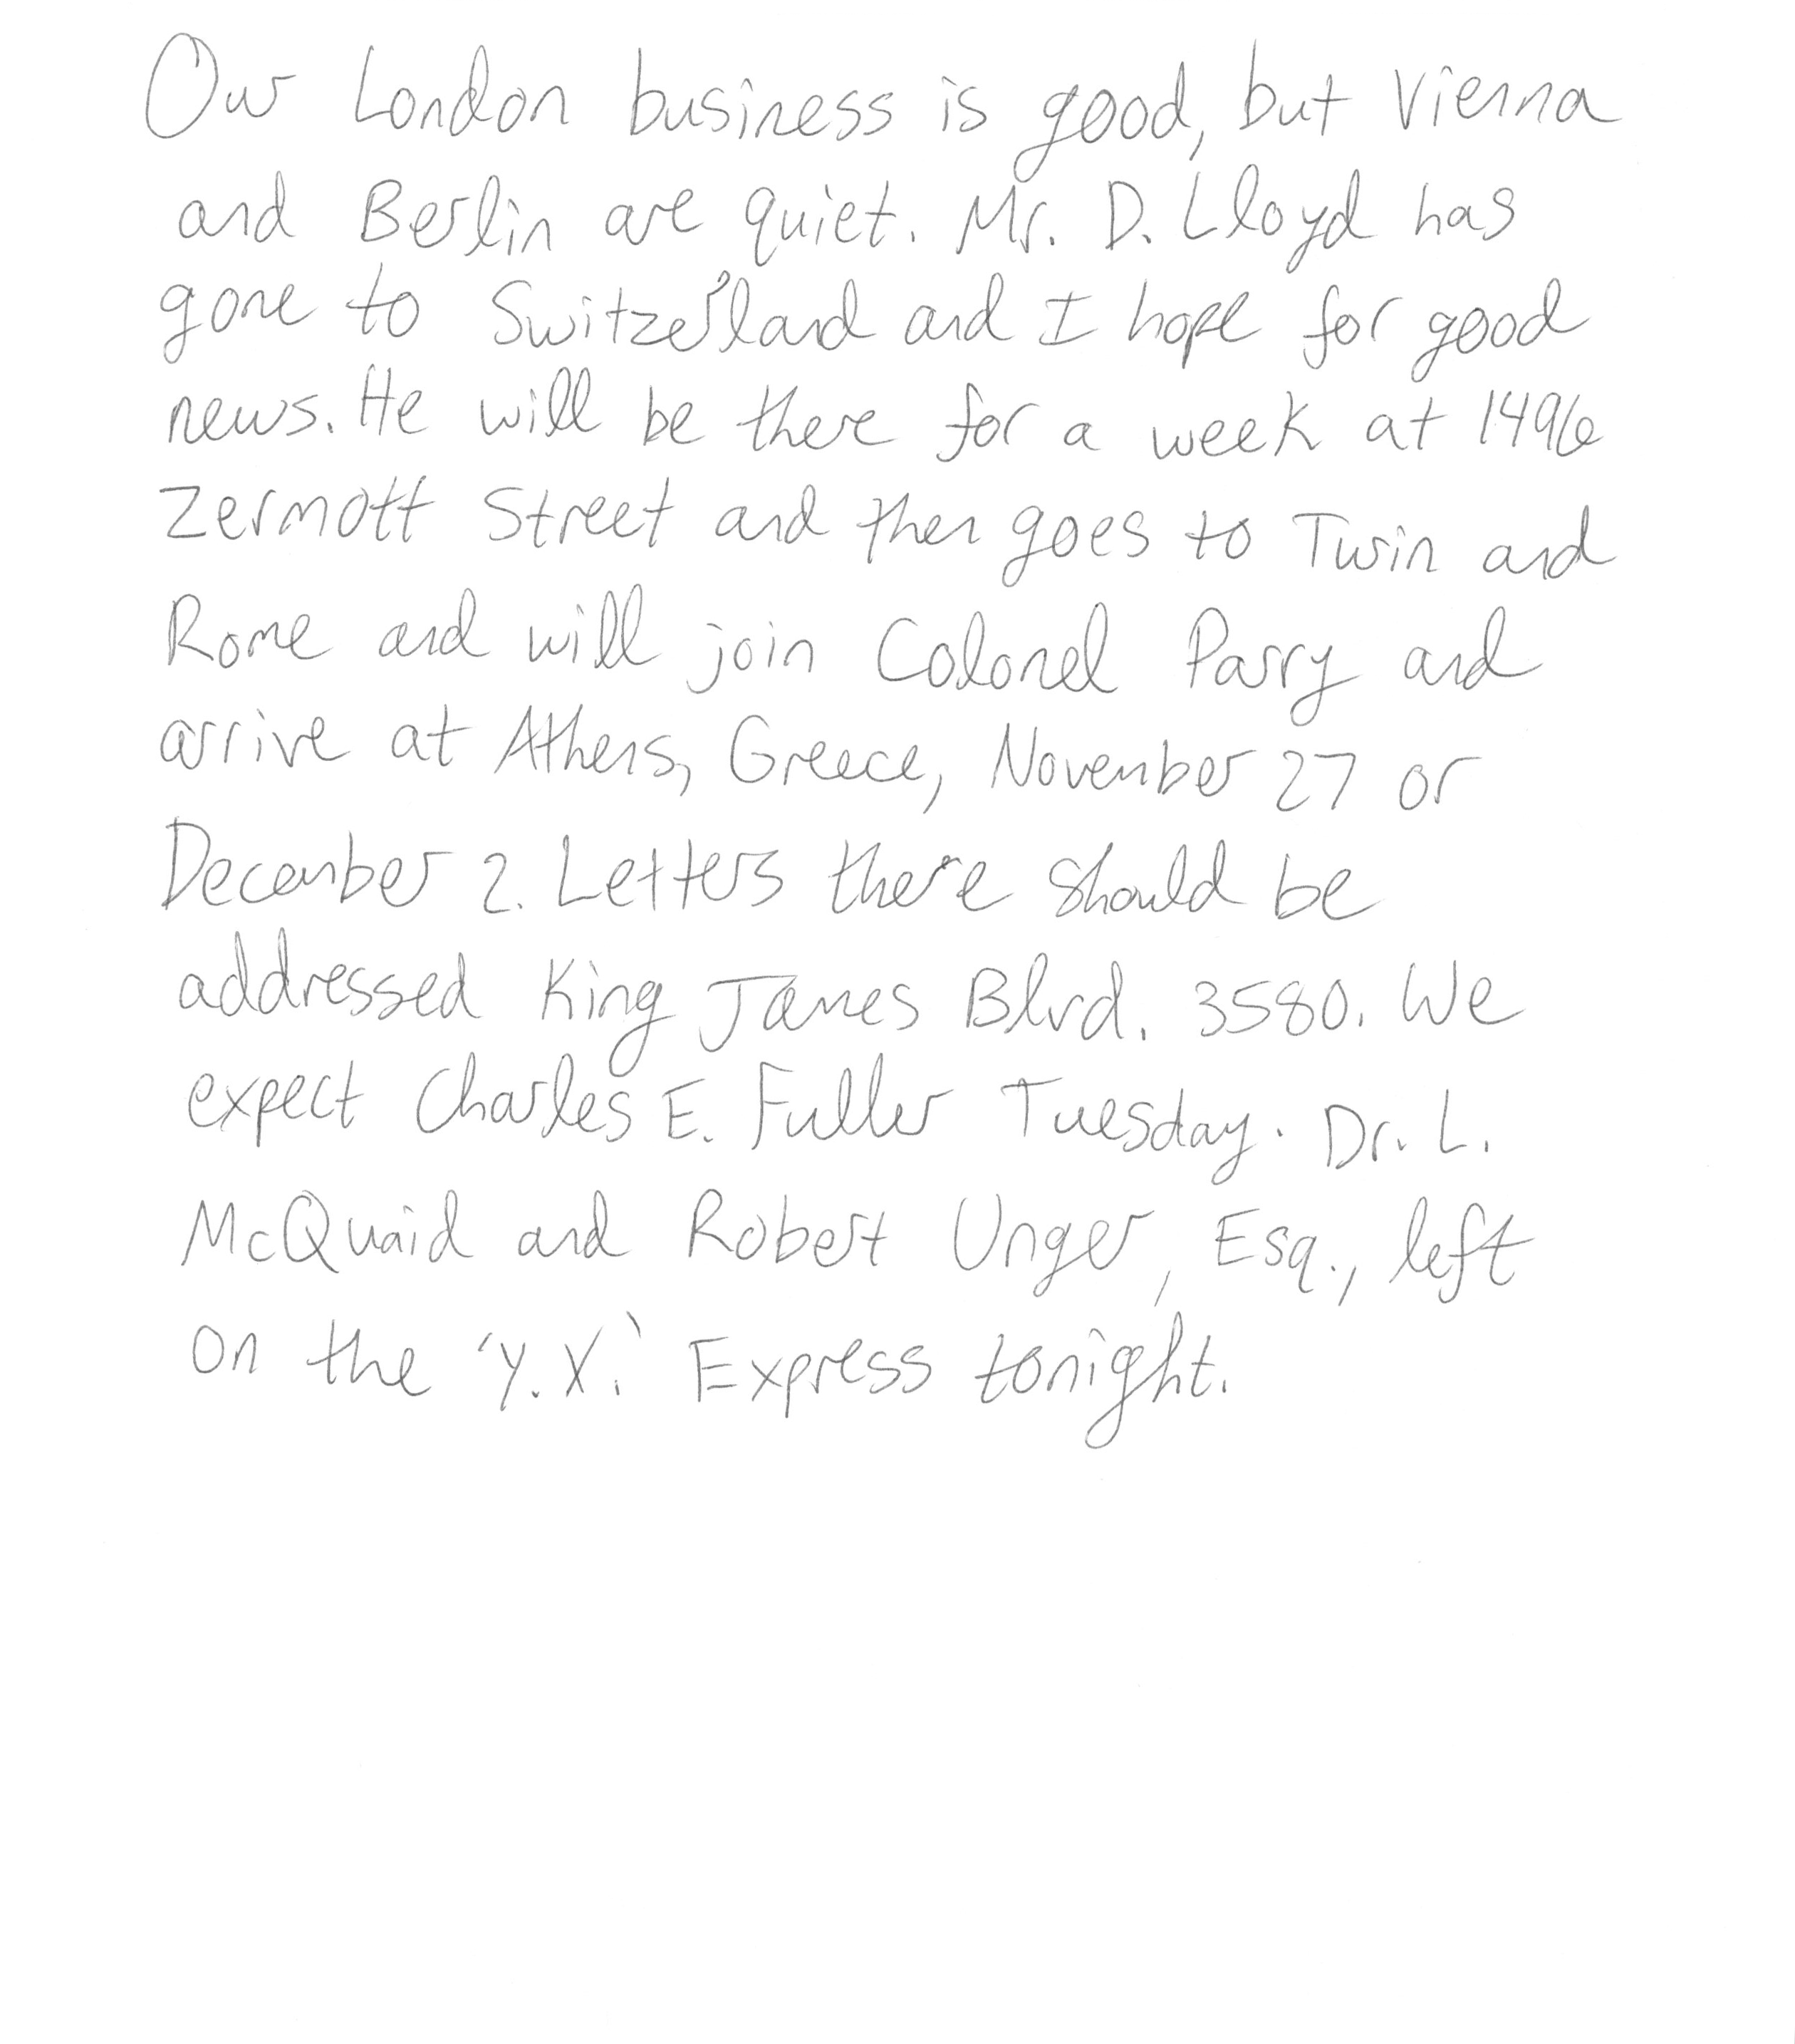 Our London business is good, but Vienna
and Berlin are quiet. Mr. D. Lloyd has
gone to Switzerland and I hope for good
news. He will be there for a week at 1496
Zermott Street and then goes to Turin and
Rome and will join Colonel Parry and
arrive at Athens, Greece, November 27 or
December 2. Letters there should be
addressed King James Blvd. 3580. We
expect Charles E. Fuller Tuesday. Dr. L.
McQuaid and Robert Unger, Esq., left
on the 'Y.X.' Express tonight.